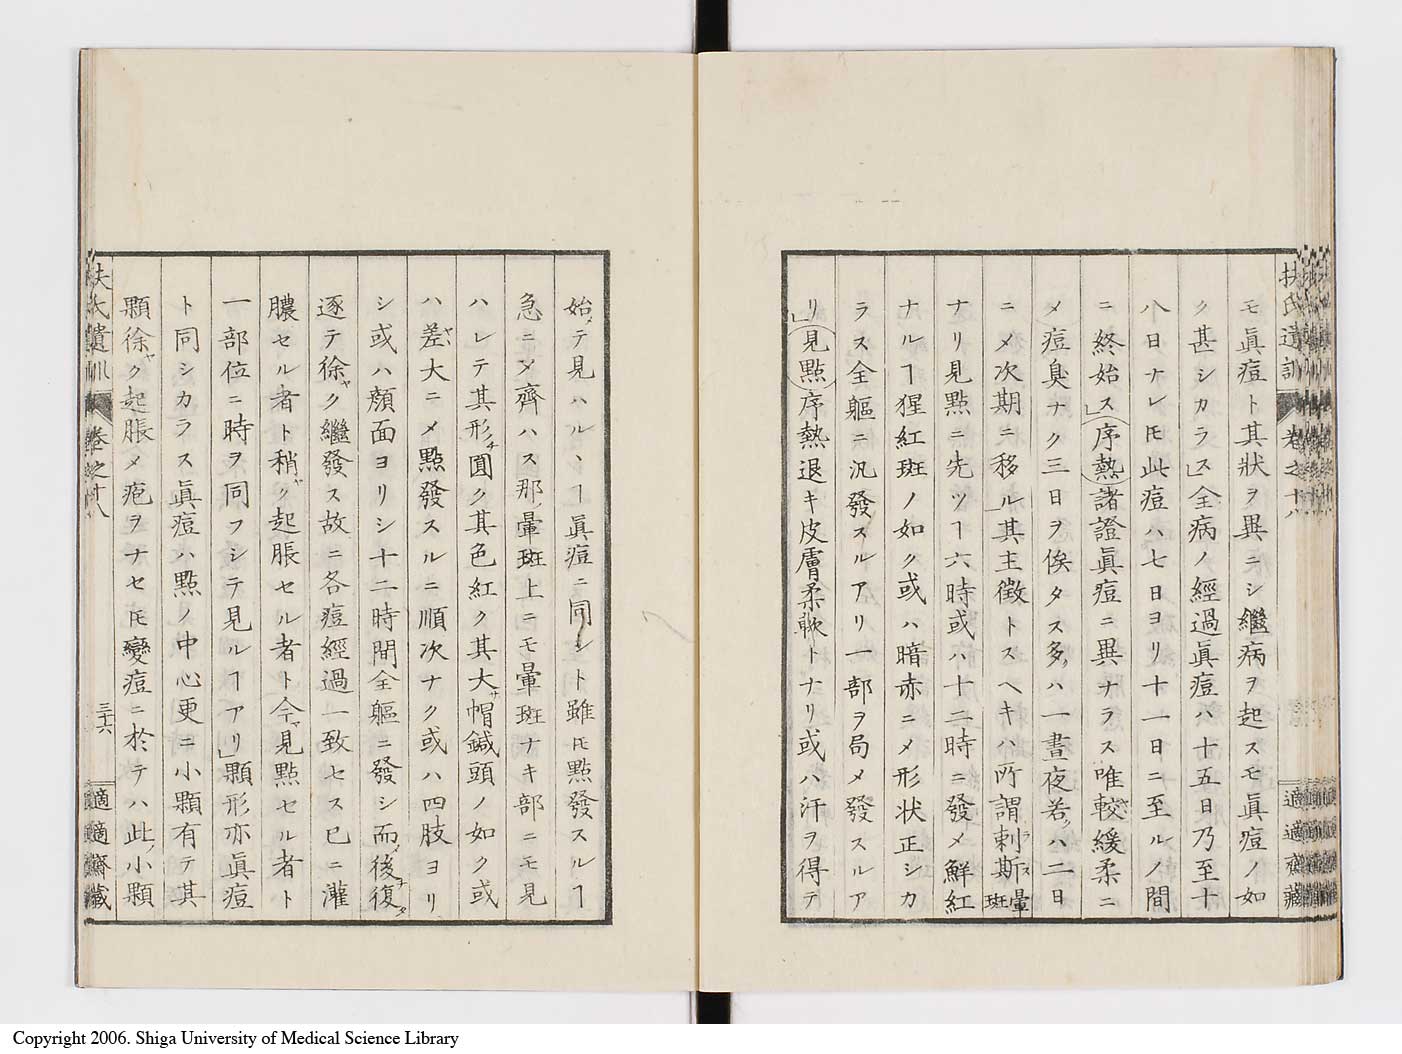 扶氏遺訓 卷之十八
適適齋藏
モ眞痘ト其狀ヲ異ニシ繼病ヲ起スモ眞痘ノ如
ク甚シカラス」全病ノ經過眞痘ハ十五日乃至十
八日ナレ𪜈此痘ハ七日ヨリ十一日ニ至ルノ間
ニ終始ス」序熱諸證眞痘ニ異ナラス唯較緩柔ニ
メ痘臭ナク三日ヲ俟タス多ハ一晝夜若ハ二日
ニメ次期ニ移ル」其主徵トスヘキハ所謂剌斯暈斑
ナリ見點ニ先ツヿ六時或ハ十二時ニ發メ鮮紅
ナルヿ猩紅斑ノ如ク或ハ暗赤ニメ形狀正シカ
ラス全軀ニ汎發スルアリ一部ヲ局メ發スルア
リ」見點序熱退キ皮膚柔軟トナリ或ハ汗ヲ得テ
始テ見ハルヽヿ眞痘ニ同シト雖𪜈點發スルヿ
急ニメ齊ハス那暈斑上ニモ暈斑ナキ部ニモ見
ハレテ其形圓ク其色紅ク其大帽鍼頭ノ如ク或
ハ差大ニメ點發スルニ順次ナク或ハ四肢ヨリ
シ或ハ顏面ヨリシ十二時間全軀ニ發シ而後復
逐テ徐ク繼發ス故ニ各痘經過一致セス已ニ灌
膿セル者ト稍ク起脹セル者ト今見點セル者ト
一部位ニ時ヲ同フシテ見ルヿアリ」顆形亦眞痘
ト同シカラス眞痘ハ點ノ中心更ニ小顆有テ其
顆徐ク起脹メ疱ヲナセ𪜈變痘ニ於テハ此小顆
扶氏遺訓 卷之十八 三十六
適適齋藏
Copyright 2006. Shiga University of Medical Science Library